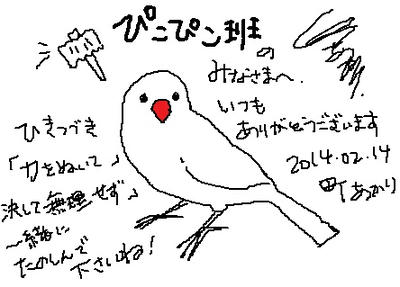 ぴこぴこ班の
みなさまへ.
いつも
ありがとうございます
2014.02.14
町あかり
ひきつづき
「力をぬいて」
決して無理せず
一緒に
たのしんで
下さいね!